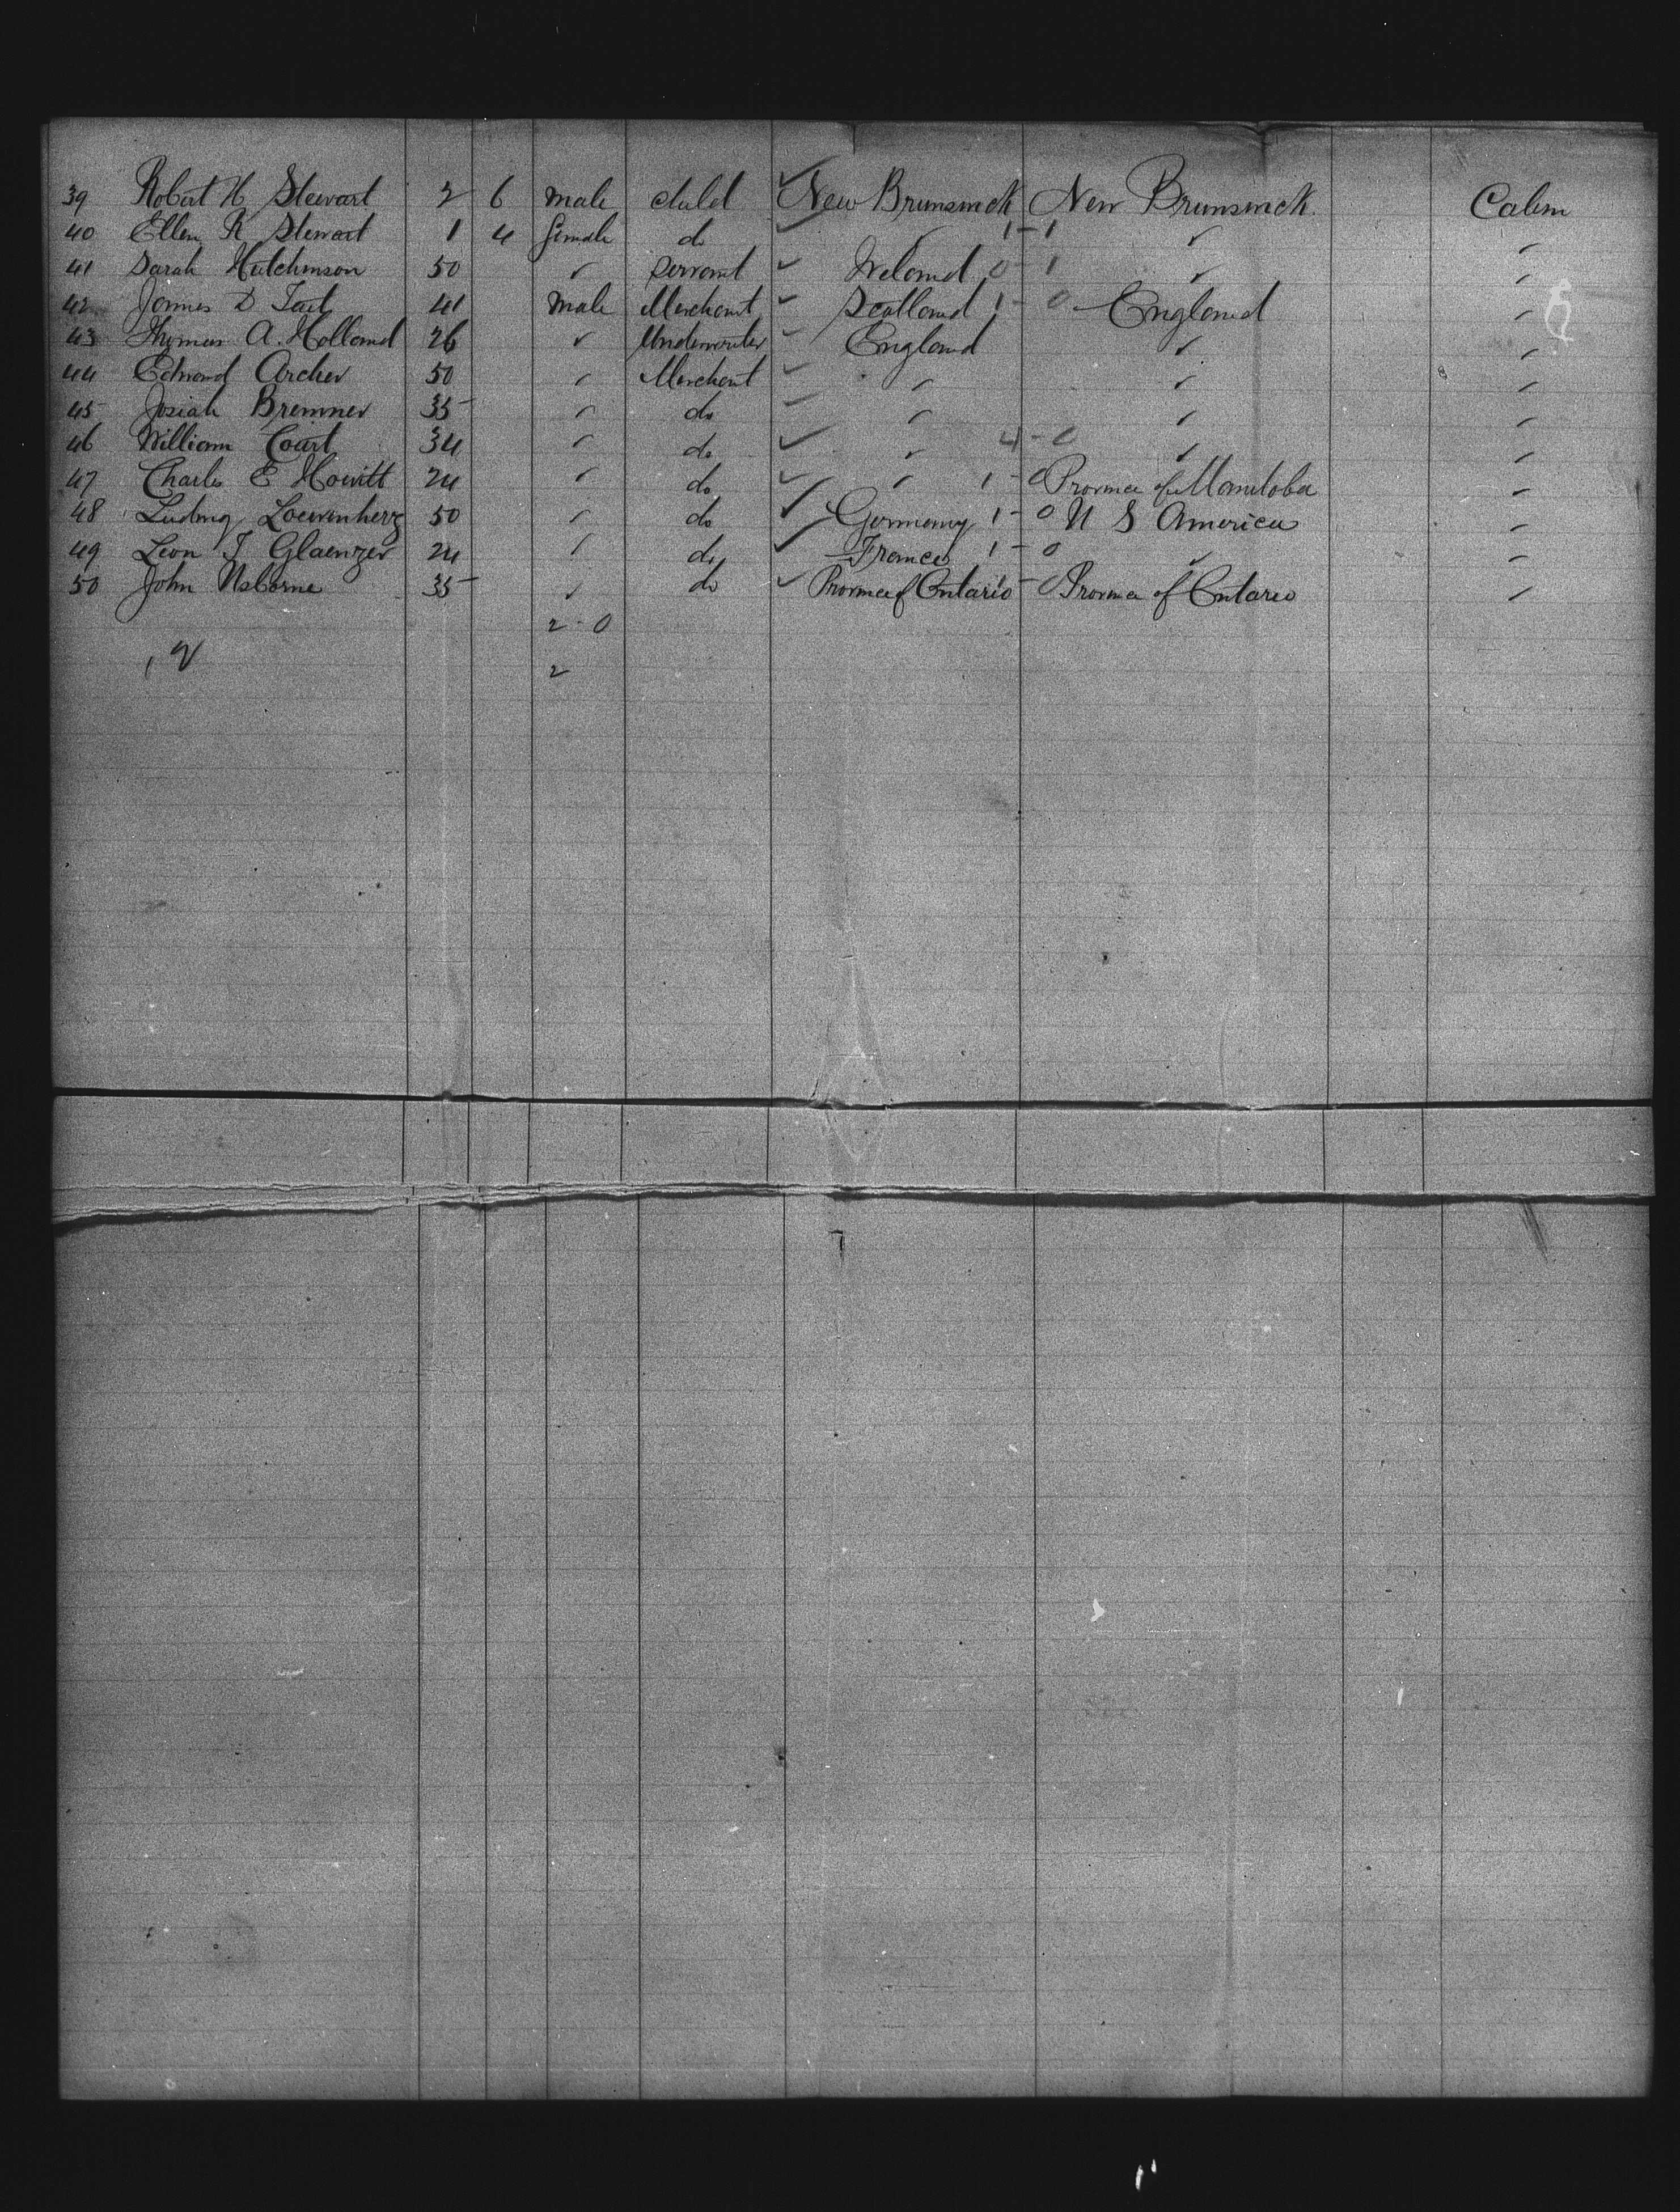 39 Robert H Stewart 2 6 male child ✓ New Brunswick New Brunswick Cabin
40 Ellen R Stewart 1 4 female do ✓ ✓ 1-1 ✓ ✓
41 Sarah Hutchinson 50 ✓ Servant ✓ Ireland 0-1 ✓ ✓
42 James D Tait 41 male Merchant ✓ Scotland 1-0 England ✓
43 A. Holland 26 ✓ Underwriter ✓ England ✓ ✓
44 Edward Archer 50 ✓ Merchant ✓ ✓ ✓ ✓
45 Josiah Bremner 35 ✓ do ✓ ✓ ✓ ✓
46 William Court 34 ✓ do ✓ ✓ 4-0 ✓ ✓
47 Charles E Howitt 24 ✓ do ✓ ✓ 1-0 Province of Manitoba ✓
48 Ludwig Loewenherz 50 ✓ do ✓ Germany 1-0 U S America ✓
49 Leon J Glaenzer 24 ✓ do ✓ France 1-0 ✓ ✓
50 John Usborne 35 ✓ do ✓ Province of Ontario 1-0 Province of Ontario ✓
2-0
2